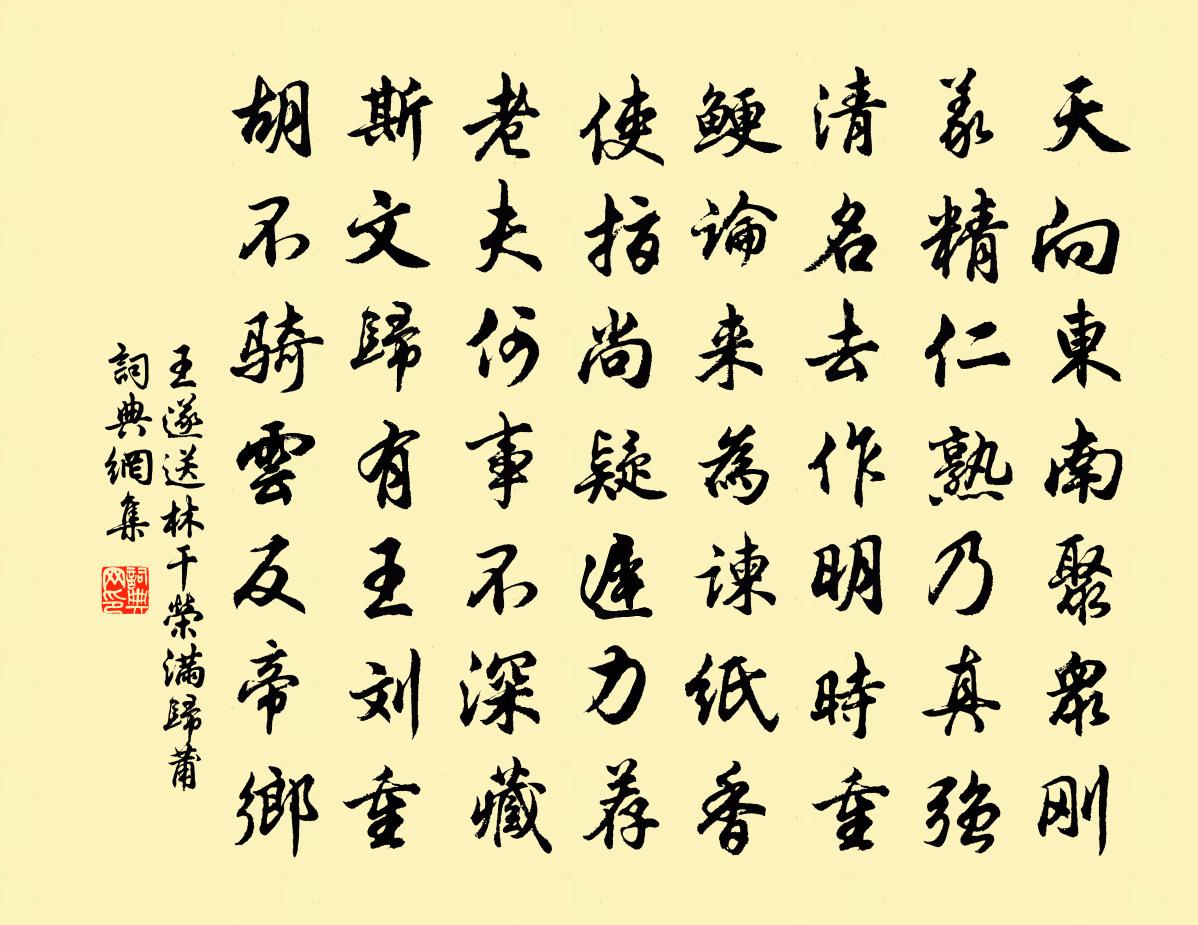 天向東南聚眾刚
義精仁熟乃真强
清名去作明時重
鯁論来為諫紙香
使指尚疑遲力荐
老夫何事不深藏
斯文歸有王刘重
胡不騎雲反帝鄉
王遂送林干榮满歸莆
詞典網集
詞典網印